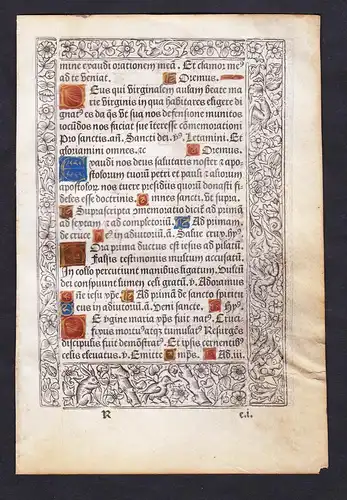 mine exaudi orationem meā. Et clamor me9
ad te veniat. Oremus.
Eus qui virginalem aulam beate ma
rie virginis in qua habitares eligere di
gnat9 es da q̄s vt sua nos defensione munitos
iocūdos nos faciat sue iteresse cōmemorationi
Pro sanctis .añ. Sancti dei. v. Letamini. Et
gloriamini omnes. Oremus.
Xaudi nos deus salutaris noster z apo
stolorum tuorū petri et pauli z aliorum
apostolorū nos tuere presidiis quorū donasti fi
deles esse doctrinis. Omnes sancti. vt supra.
Suprascripta memoratio dicit ad primā
ad sextam z ad completoriū. Ad primam
de cruce Eus in adiutoriū. Salue crux. hy9
Ora prima ductus est iesus ad pilatū
Falsis testimoniis multum accusatū.
In collo percutiunt manibus ligatum. Vultū
dei conspuunt lumen celi gratū. v. Adoramus
ñe iesu xpē. Ad primā de sancto spiritu
eus in adiutoriū. Veni sancte. Hy9
E virgine maria xps fuit nat9. Cruci
fixus mortu9 atqz tumulat9 Resurgēs
discipulis fuit demōstrat9. Et ipsis cernentib9
celis eleuatus. v. Emitte Ad .iii.
R e.i.